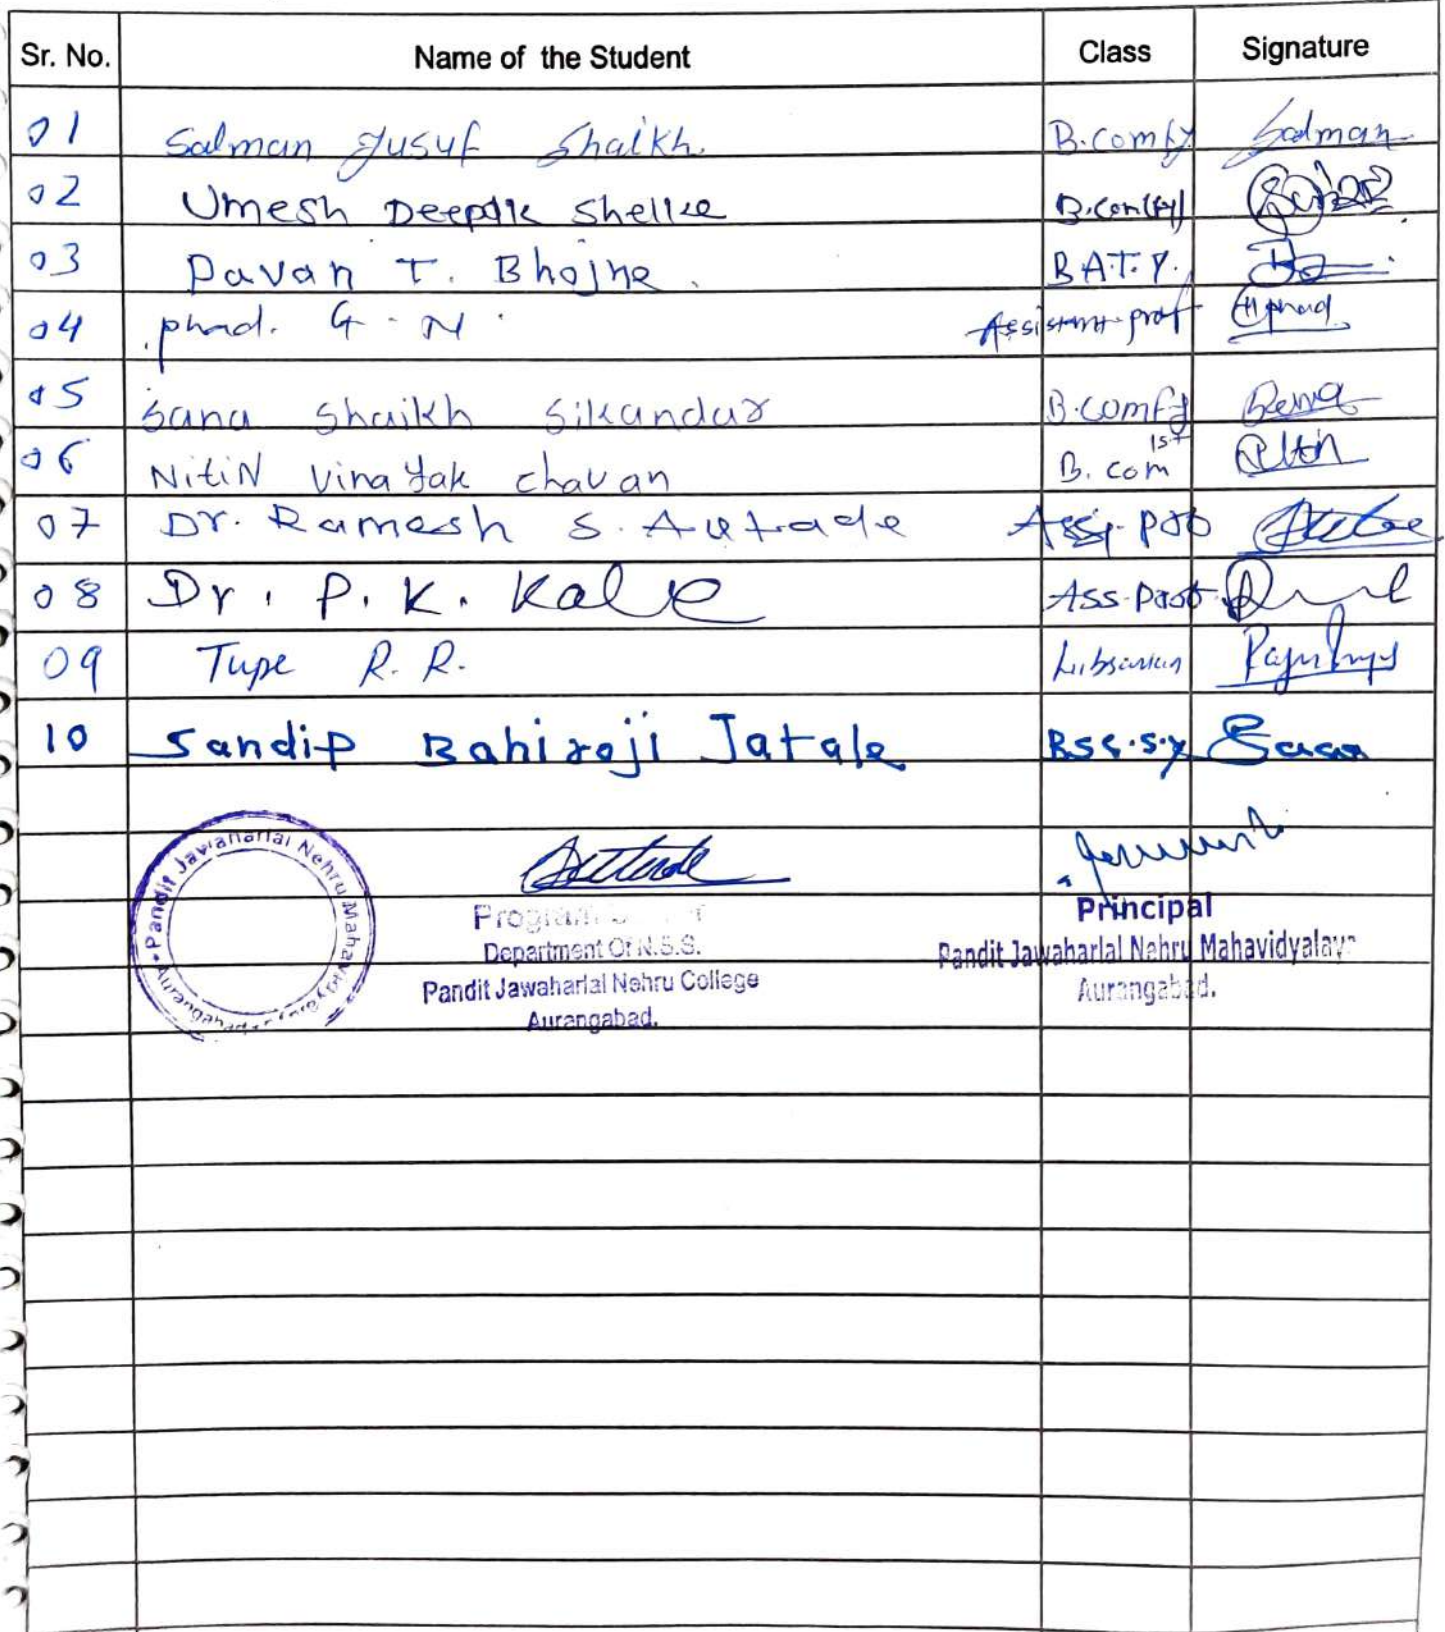 Sr. No. Name of the Student Class Signature
01 Salman Yusuf Shaikh. B.com fy Salman
02 Umesh Deepak Shelke B.com(fy)
03 Pavan T. Bhojne. B.A.T.Y.
04 phad. G. N. Assistant prof phad
05 Sana Shaikh Sikandar B.comfy Sana
06 NitiN Vinayak chavan B. com 1st Nitin
07 Dr. Ramesh S. Autade Assi. prof
08 Dr. P. K. Kale Ass. prof
09 Tupe R. R. Librarian
10 Sandip Bahiroji Jatale BSC.S.Y
Pandit Jawaharlal Nehru Mahavidyalaya Aurangabad
Program
Department Of N.S.S.
Pandit Jawaharlal Nehru College
Aurangabad.
Principal
Pandit Jawaharlal Nehru Mahavidyalaya
Aurangabad.